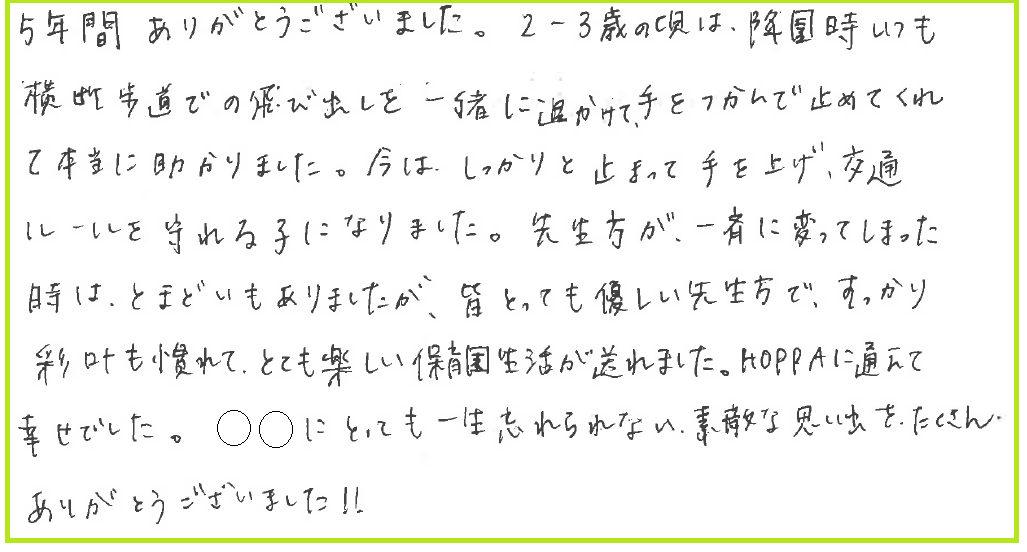 5年間 ありがとうございました。 2-3歳の頃は、降園時いつも
横断歩道での飛び出しを 一緒に追かけて、手をつかんで止めてくれ
て本当に助かりました。今は、しっかりと止まって手を上げ、交通
ルールを守れる子になりました。先生方が、一斉に変ってしまった
時は、とまどいもありましたが、皆とっても優しい先生方で、すっかり
彩叶も慣れて、とても楽しい保育園生活が送れました。HOPPAに通えて
幸せでした。 ○○にとっても一生忘れられない、素敵な思い出を、たくさん
ありがとうございました!!